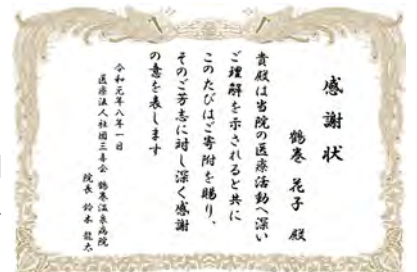 感謝状
鶴巻 花子 殿
貴殿は当院の医療活動へ深い
ご理解を示されると共に
このたびはご寄附を賜り、
そのご芳志に対し深く感謝
の意を表します
令和元年八年一日
医療法人社団三喜会 鶴巻温泉病院
院長 鈴木 龍太